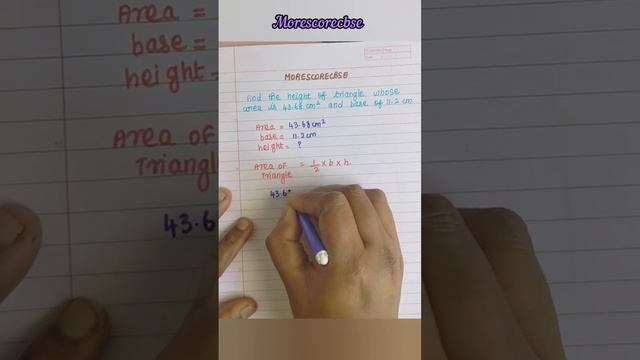 Morescorecbse
MORESCORECBSE
And the height of triangle whose
area is 43.68 cm² and base of 11.2 cm
Area = 43.68 cm²
base = 11.2 cm
height = ?
Area of Triangle = 1/2 × b × h.
43.6
Area =
base =
height =
Area of
Triangle
43.6